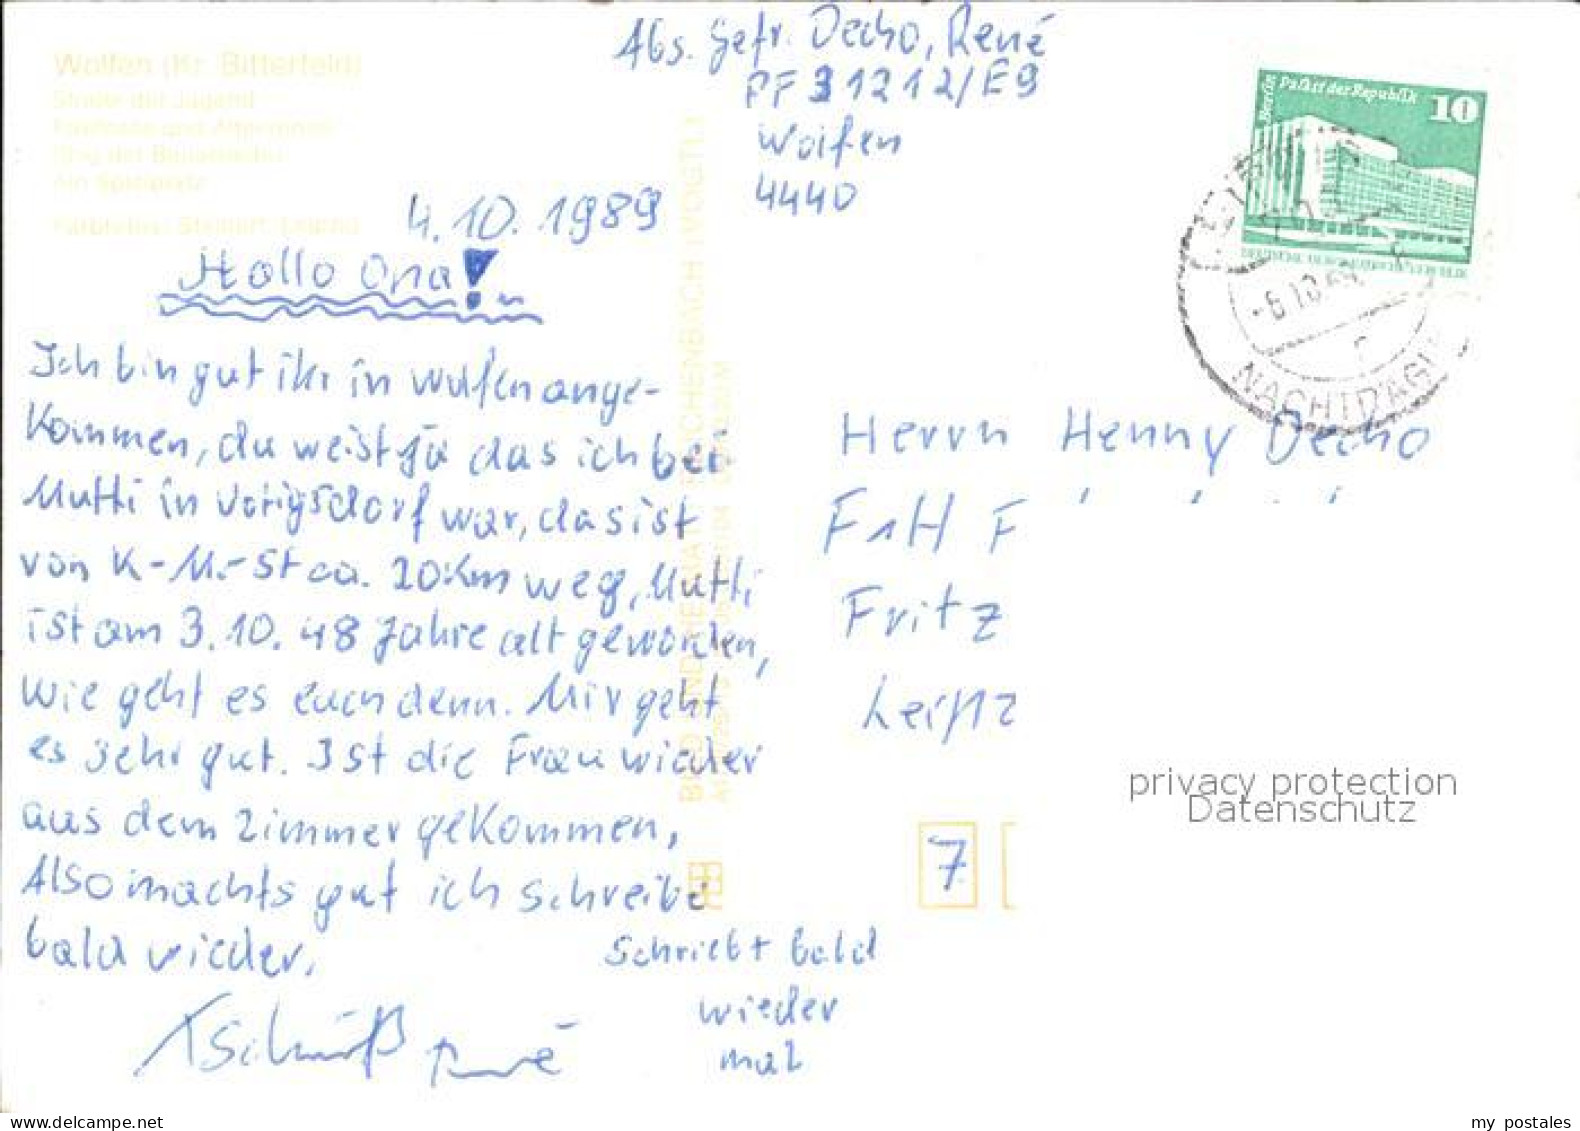 Wolfen (Kr. Bitterfeld)
Straße der Jugend
Ein Spielplatz
Farbfotos: Steinert, Leipzig
Abs. Gefr. Decho, René
PF 31212/E9
Wolfen
4440
Berlin Palast der Republik 10
4.10.1989
-6.10.89
Hallo Opa!
Ich bin gut ihr in wolfen ange-
kommen, du weist ja das ich bei
Mutti in Voigsdorf war, das ist
von K-M.-St ca. 20 km weg, Mutti
ist am 3.10. 48 Jahre alt geworden,
wie geht es euch denn. Mir geht
es sehr gut. Ist die Frau wieder
aus dem Zimmer gekommen,
Also machts gut ich schreibe
bald wieder.
Tschüß René
Schreibt bald
wieder
mal
BILD UND HEIMAT REICHENBACH (VOGTL)
Herrn Henny Decho
F
Fritz
Leipz
7
privacy protection
Datenschutz
my postales